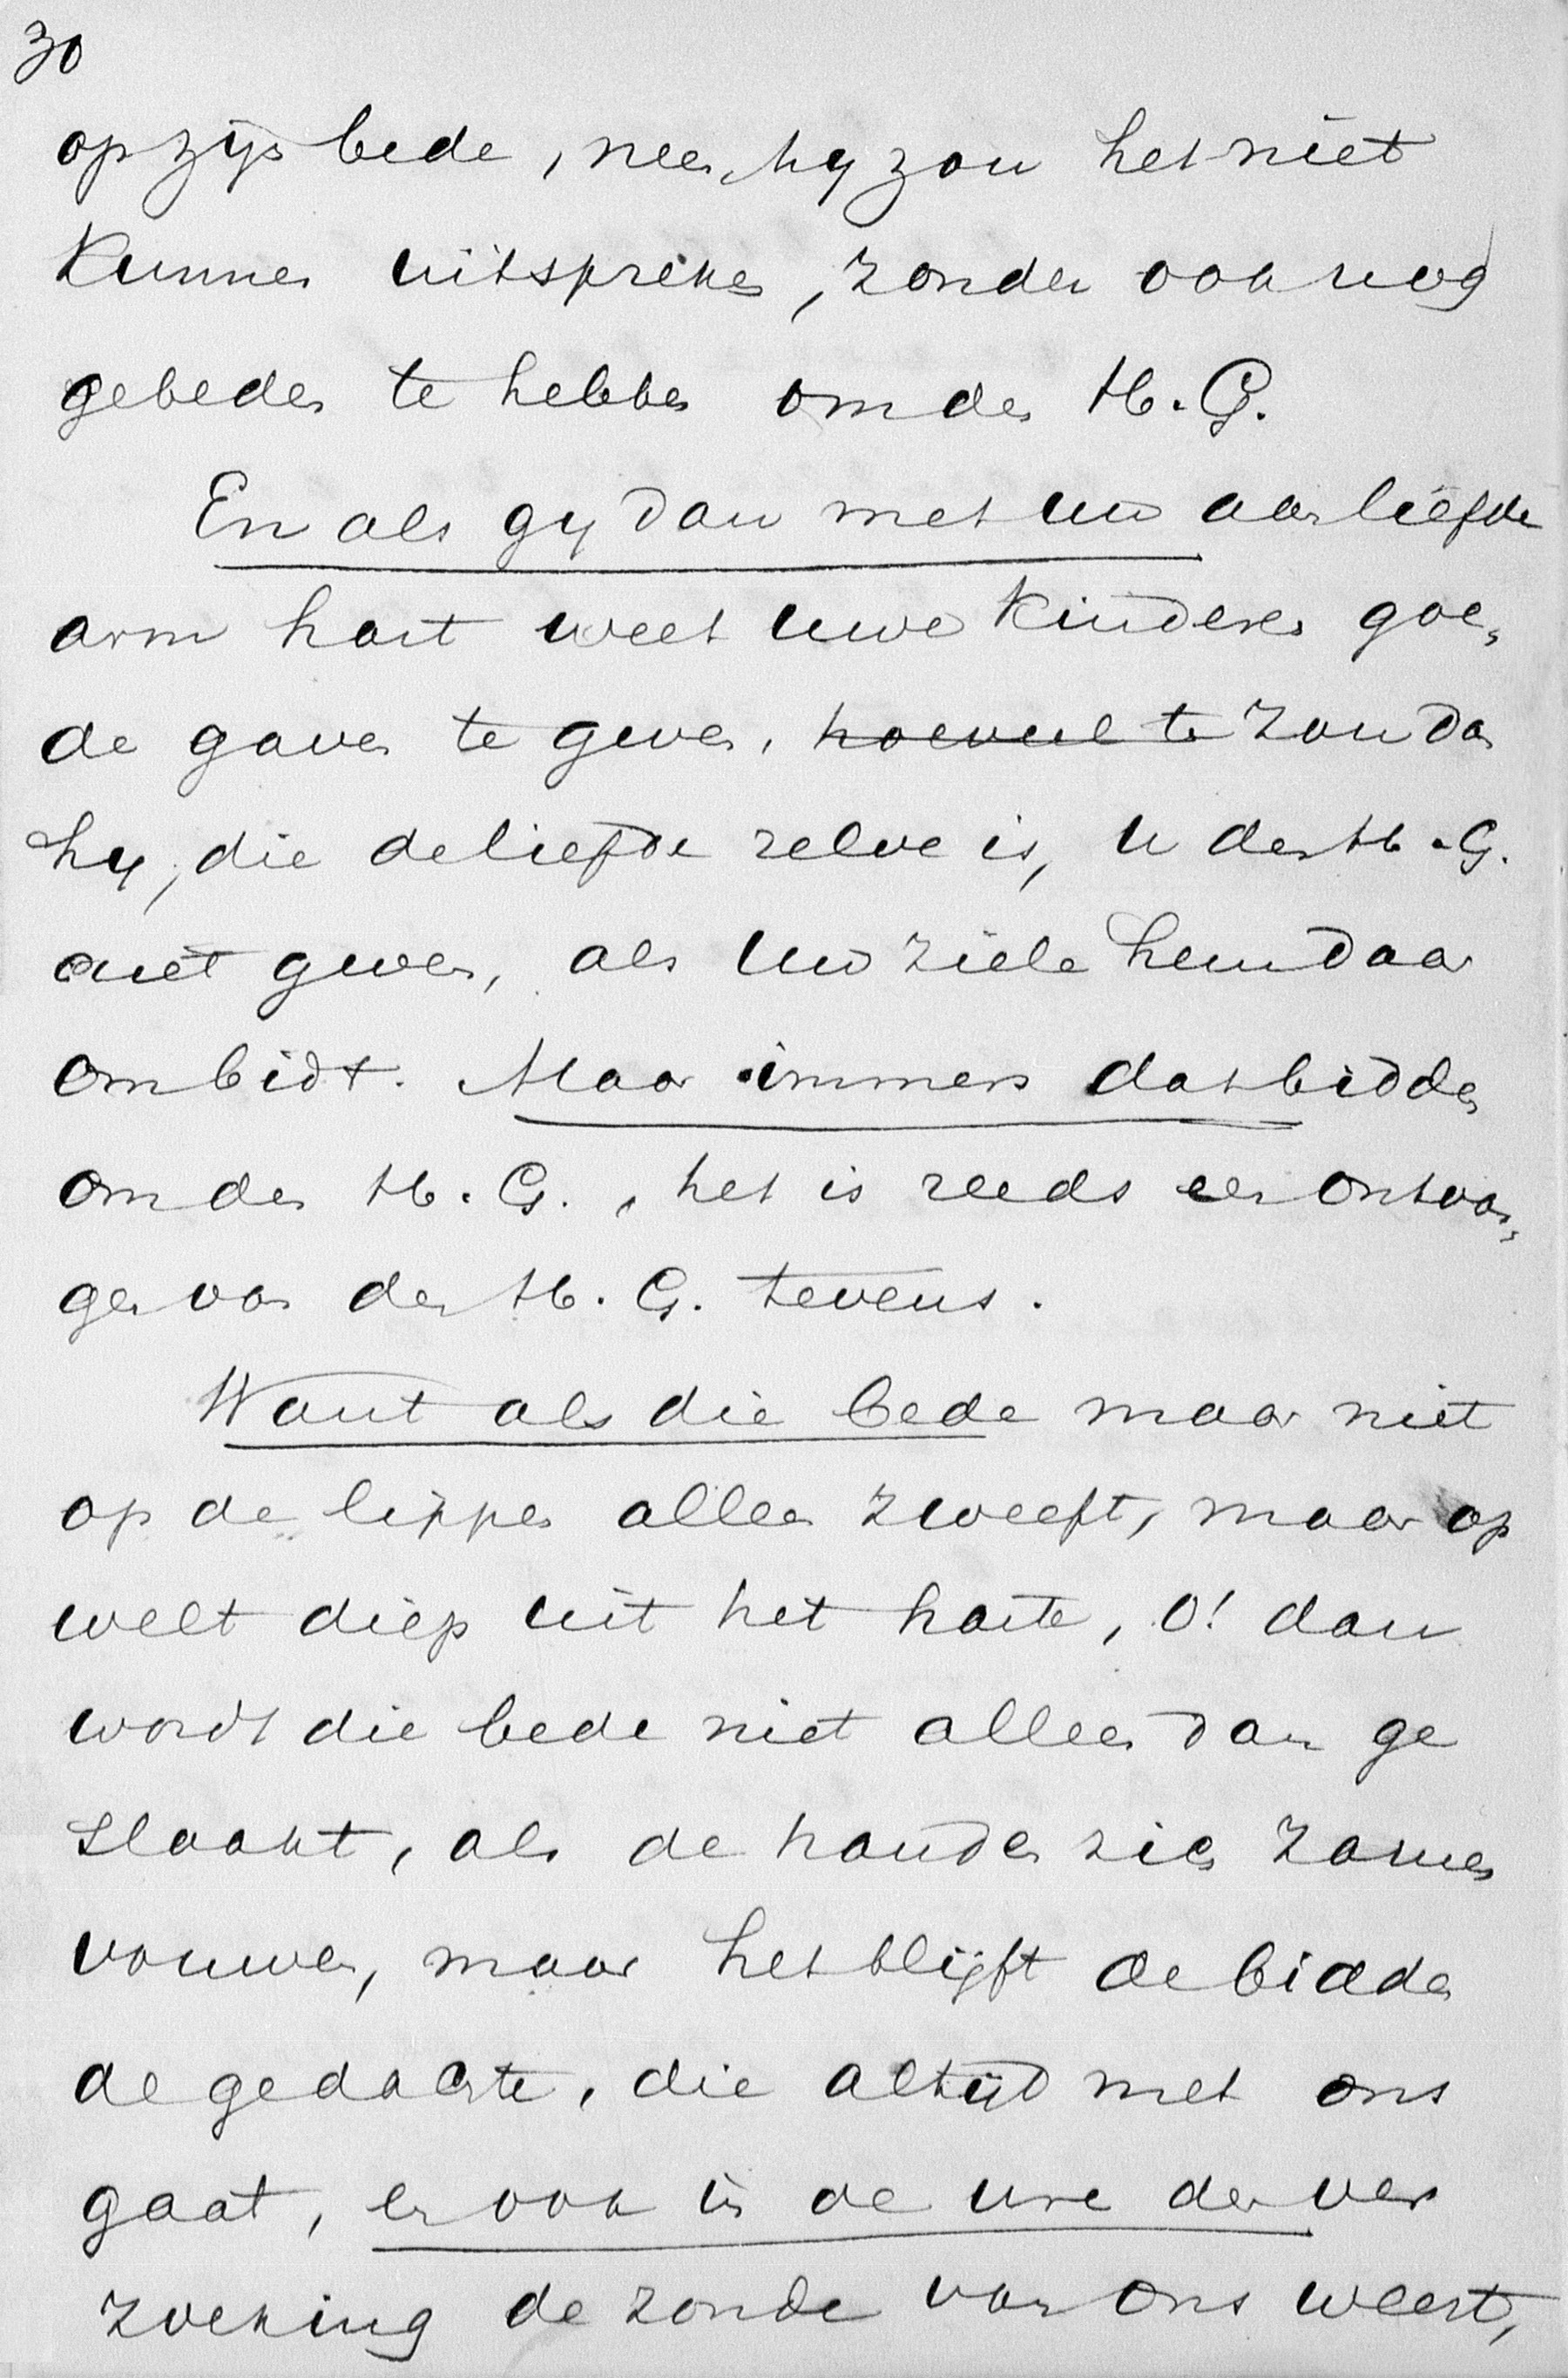 30
op zijn bede, neen, hy zou het niet
kunnen uitspreken, zonder ook nog
gebeden te hebben om den H. G.
En als gy dan met uw aan liefde
arm hart weet uwe kinderen goe„
de gaven te geven, hoeveel te zou dan
hy, die de liefde zelve is, u den H. G.
niet geven, als uw ziele hem daar
om bidt. Maar immers dat bidden
om den H. G., het is reeds een ontvan„
gen van den H. G. tevens.
Want als die bede maar niet
op de lippen alleen zweeft, maar op
welt diep uit het harte, o! dan
wordt die bede niet alleen dan ge
slaakt, als de handen zich zamen
vouwen, maar het blijft de bidden
de gedachte, die altijd met ons
gaat, en ook in de ure der ver
zoeking de zonde van ons weert,